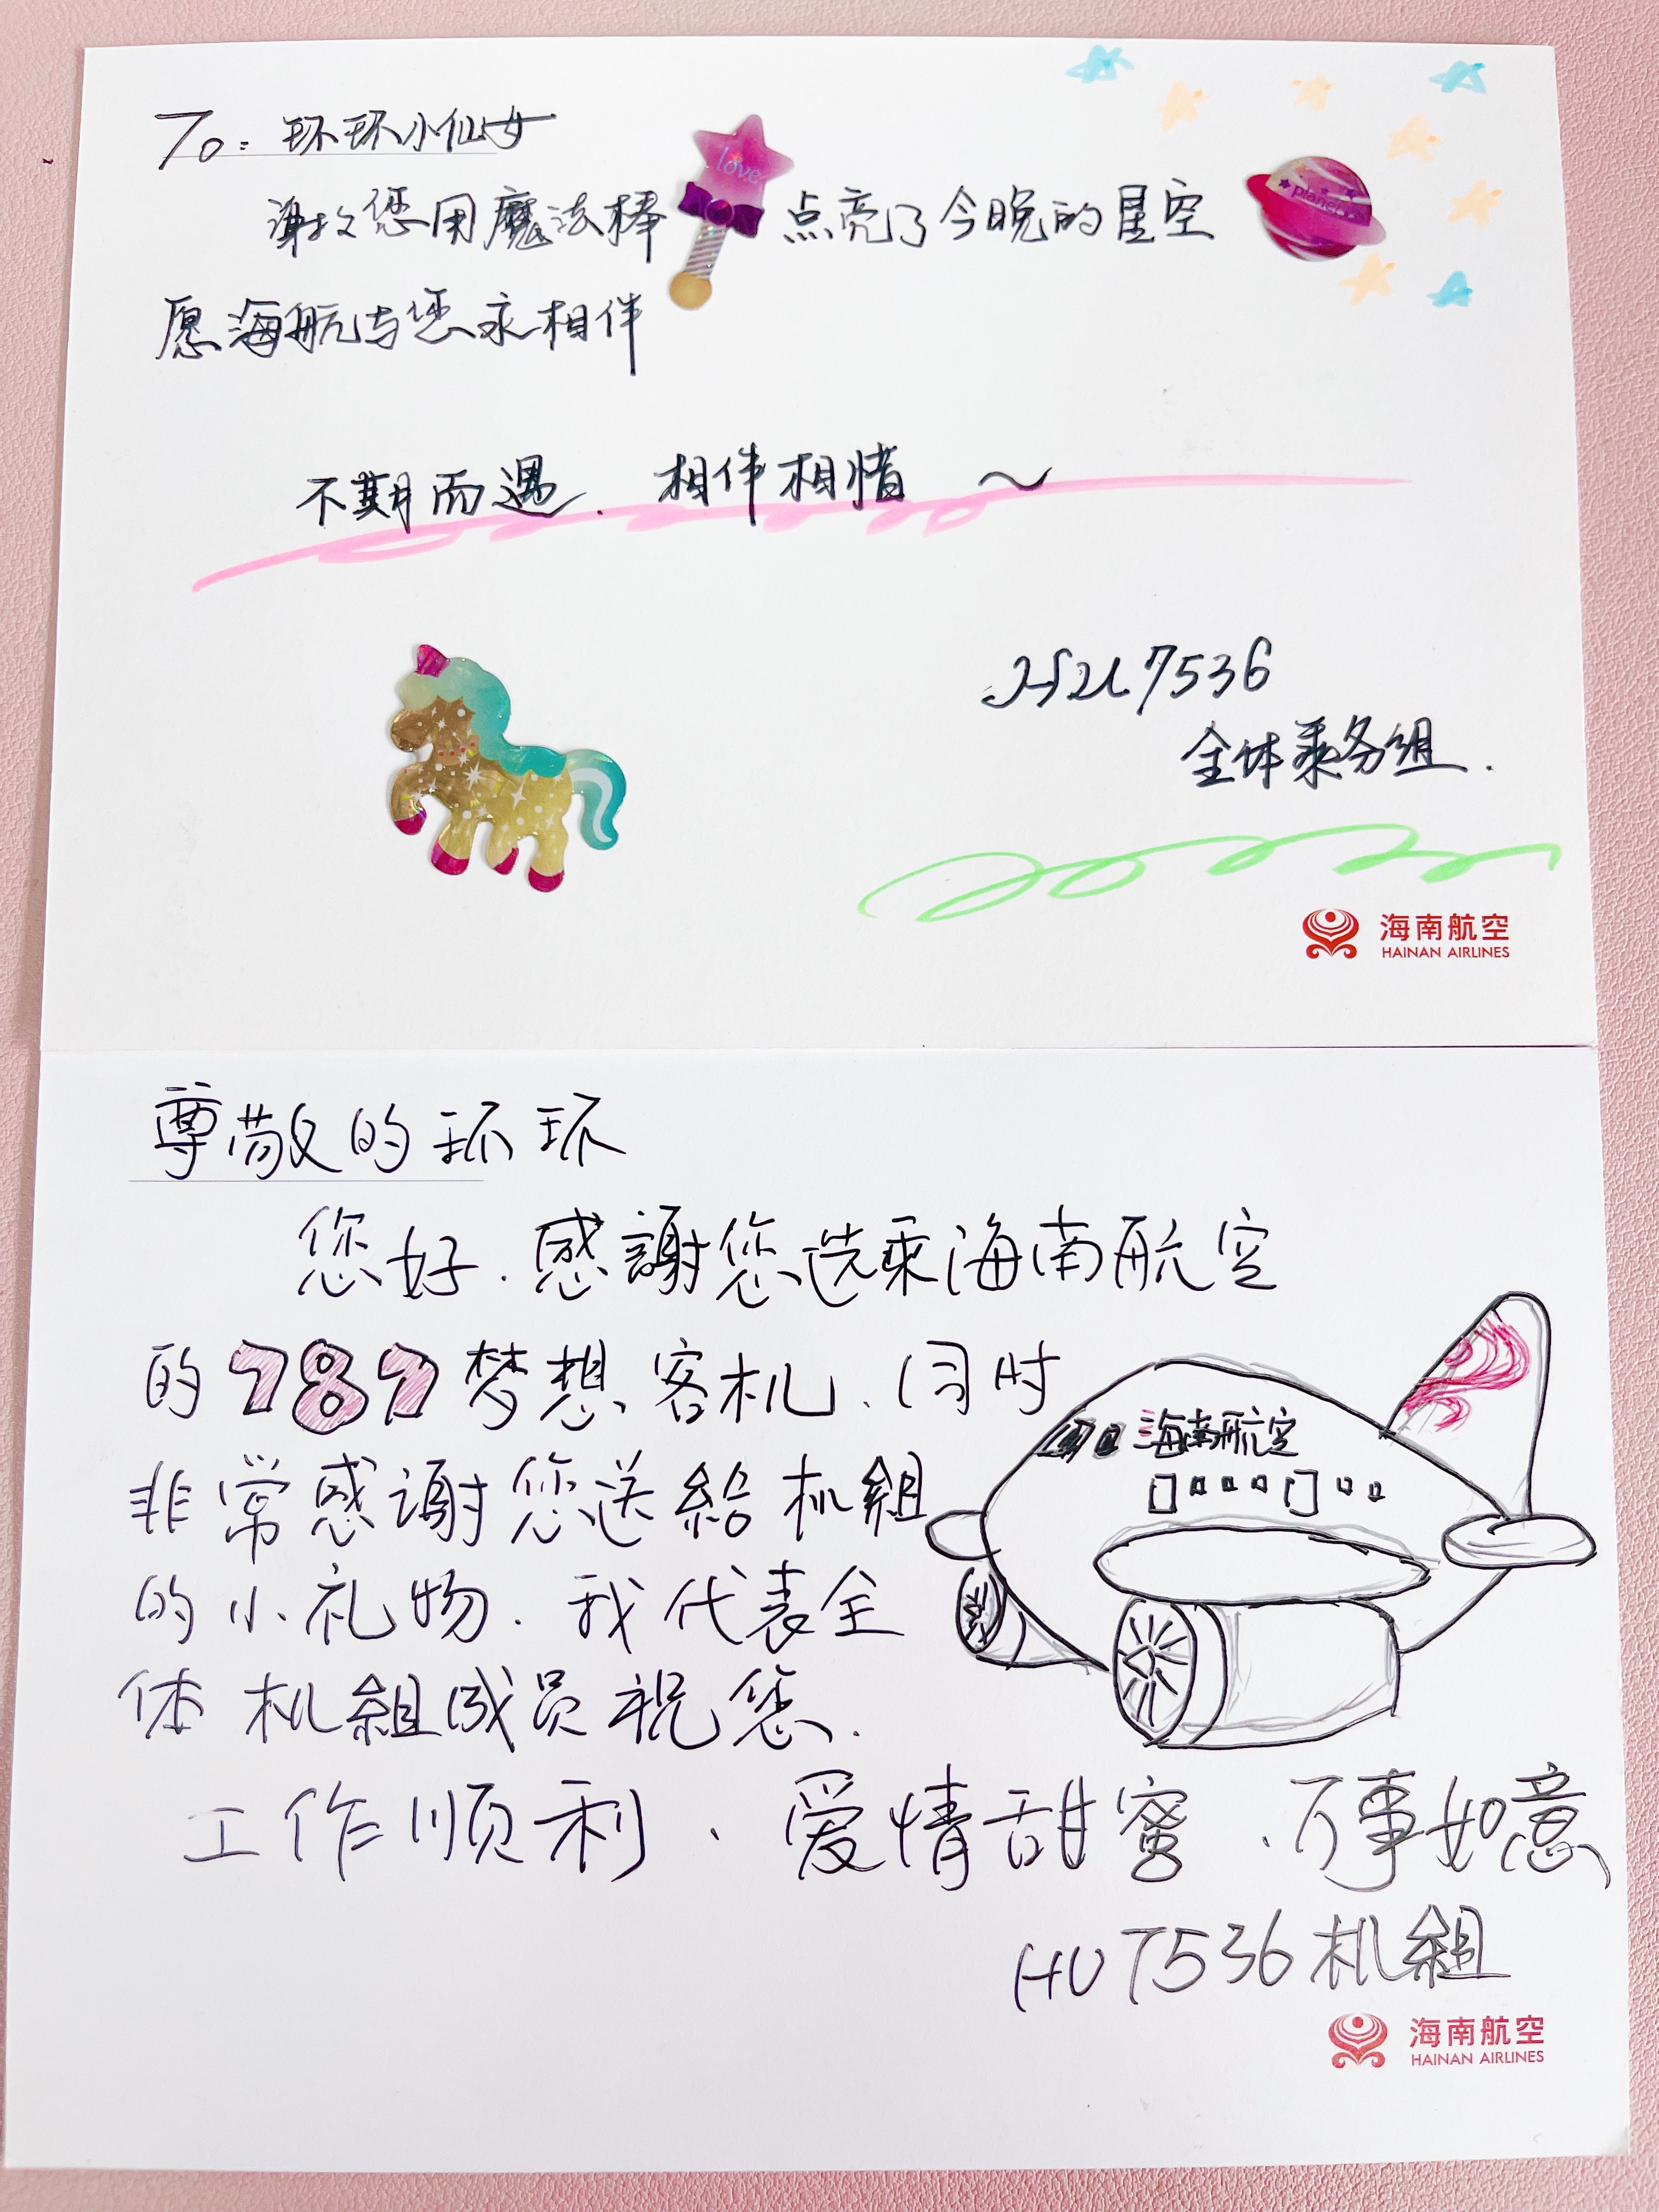 To: 环环小仙女
谢谢您用魔法棒 love 点亮了今晚的星空 planet
愿海航与您永相伴
不期而遇. 相伴相惜 ~
HU7536
全体乘务组.
海南航空
HAINAN AIRLINES
尊敬的环环
您好.感謝您选乘海南航空
的787梦想客机、同时
非常感谢您送给机組
的小礼物.我代表全
体机組成员祝您.
工作顺利、爱情甜蜜、万事如意
海南航空
HU7536机組
海南航空
HAINAN AIRLINES